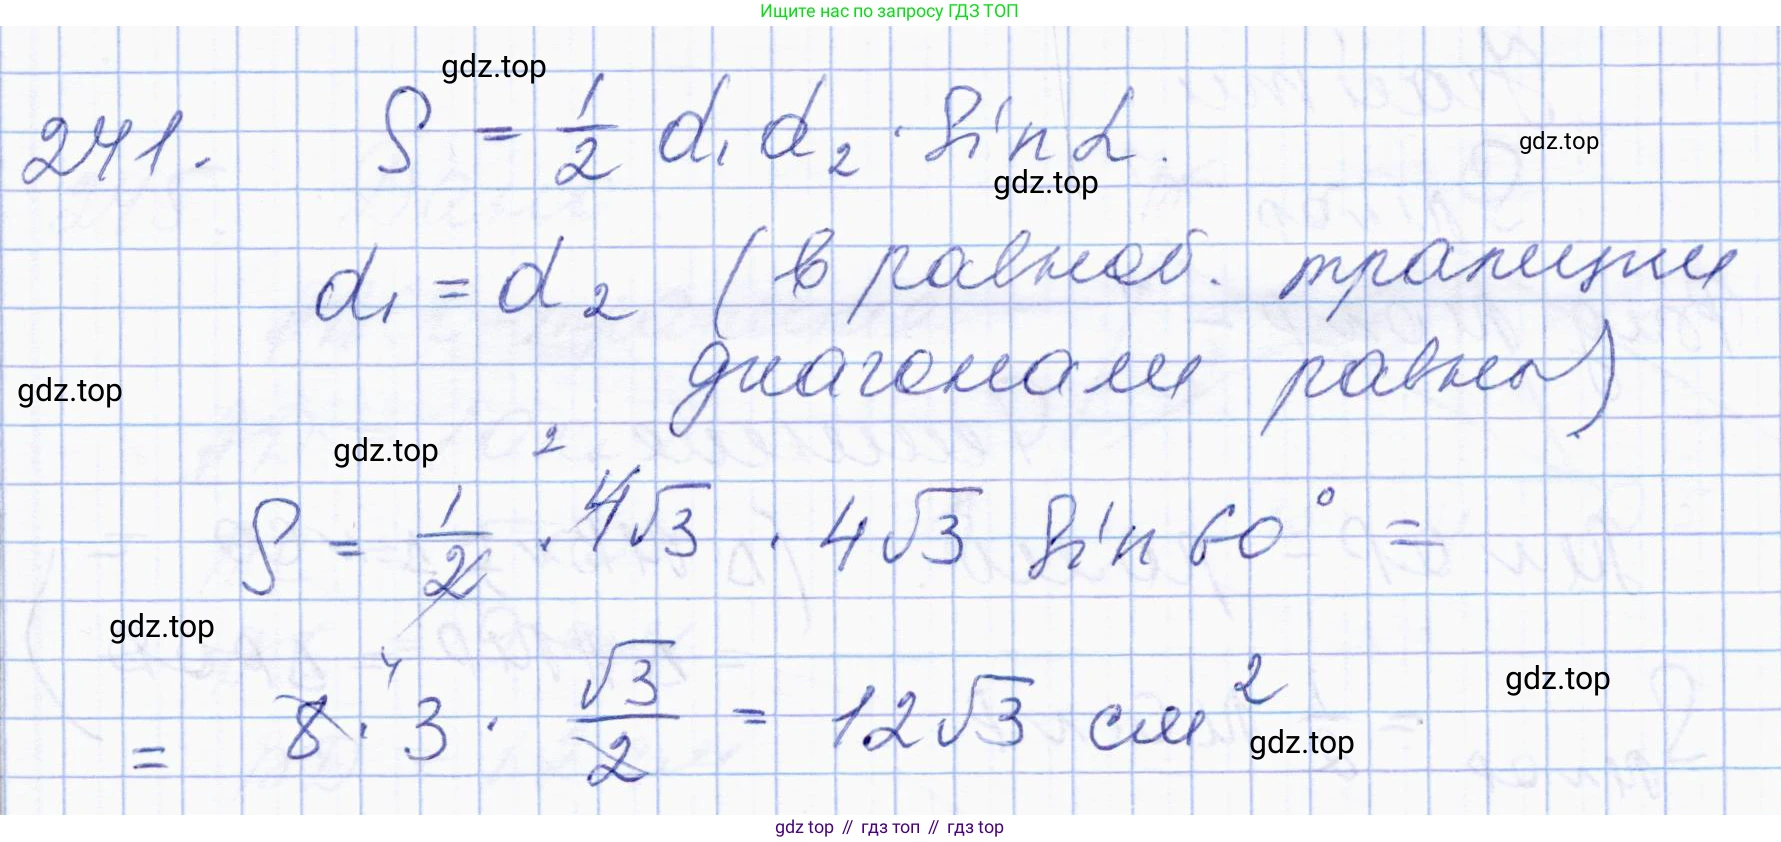 Ищите нас по запросу ГДЗ ТОП
gdz.top
241. S = 1/2 d₁ d₂ · sin α.
gdz.top
gdz.top
d₁ = d₂ (в равноб. трапеции
диагонали равны)
gdz.top
gdz.top
S = 1/2 · 4√3 · 4√3 sin 60° =
2
gdz.top
= 8 · 3 · √3/2 = 12√3 см²
4
gdz.top
gdz.top
gdz top // гдз топ // gdz top